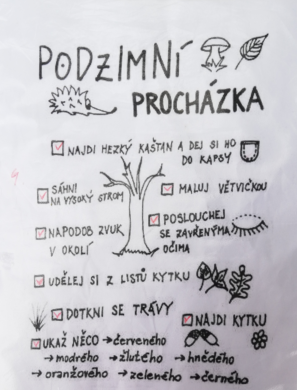 PODZIMNÍ
PROCHÁZKA
NAJDI HEZKÝ KAŠTAN A DEJ SI HO
DO KAPSY
SÁHNI
NA VYSOKÝ STROM
MALUJ VĚTVIČKOU
NAPODOB ZVUK
V OKOLÍ
POSLOUCHEJ
SE ZAVŘENÝMA
OČIMA
UDĚLEJ SI Z LISTŮ KYTKU
DOTKNI SE TRÁVY
NAJDI KYTKU
UKAŽ NĚCO → červeného
→ modrého → žlutého → hnědého
→ oranžového → zeleného → černého